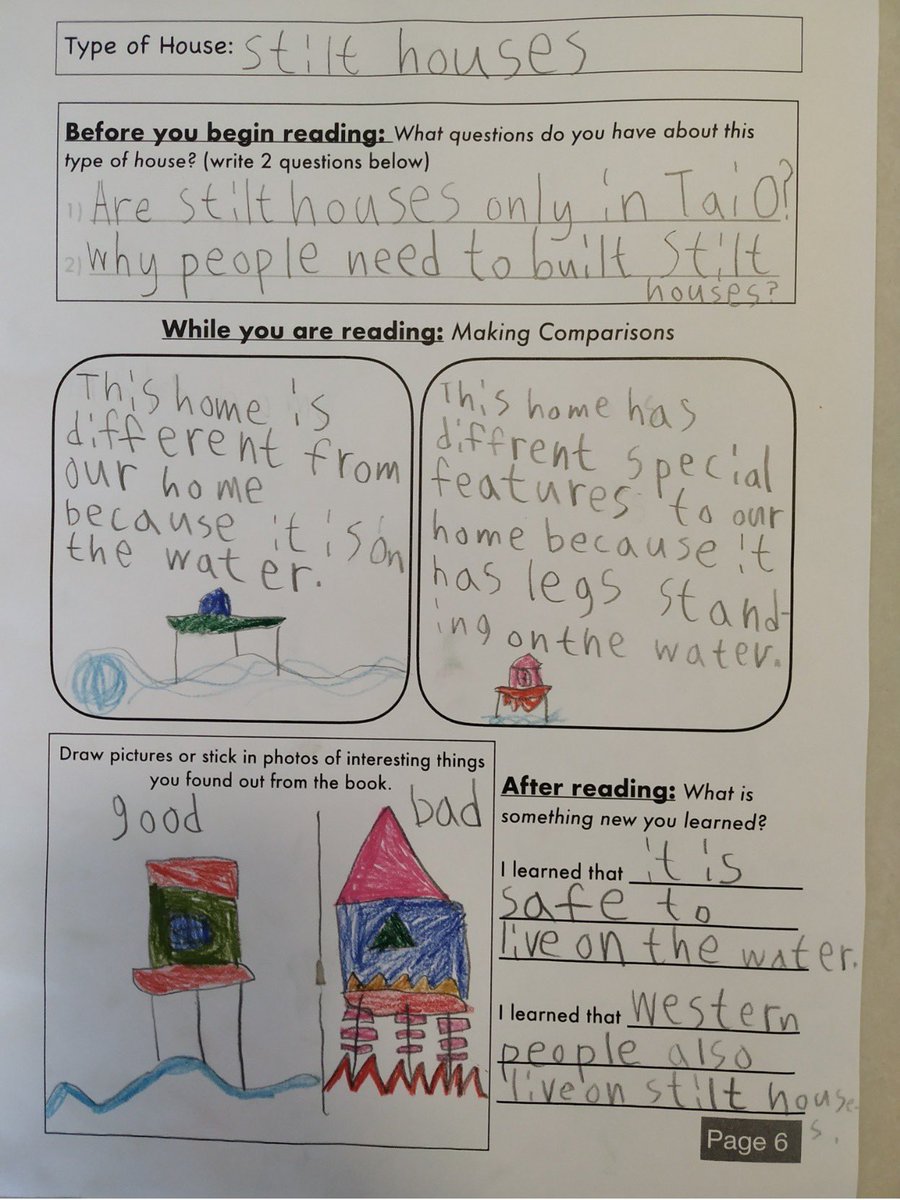 Type of House: stilt houses
Before you begin reading: What questions do you have about this
type of house? (write 2 questions below)
1) Are stilt houses only in Tai O?
2) Why people need to built stilt
houses?
While you are reading: Making Comparisons
This home is
different from
our home
because it is on
the water.
This home has
diffrent special
features to our
home because it
has legs stand-
ing on the water.
Draw pictures or stick in photos of interesting things
you found out from the book.
good
bad
After reading: What is
something new you learned?
I learned that it is
safe to
live on the water.
I learned that western
people also
live on stilt house-
s.
Page 6